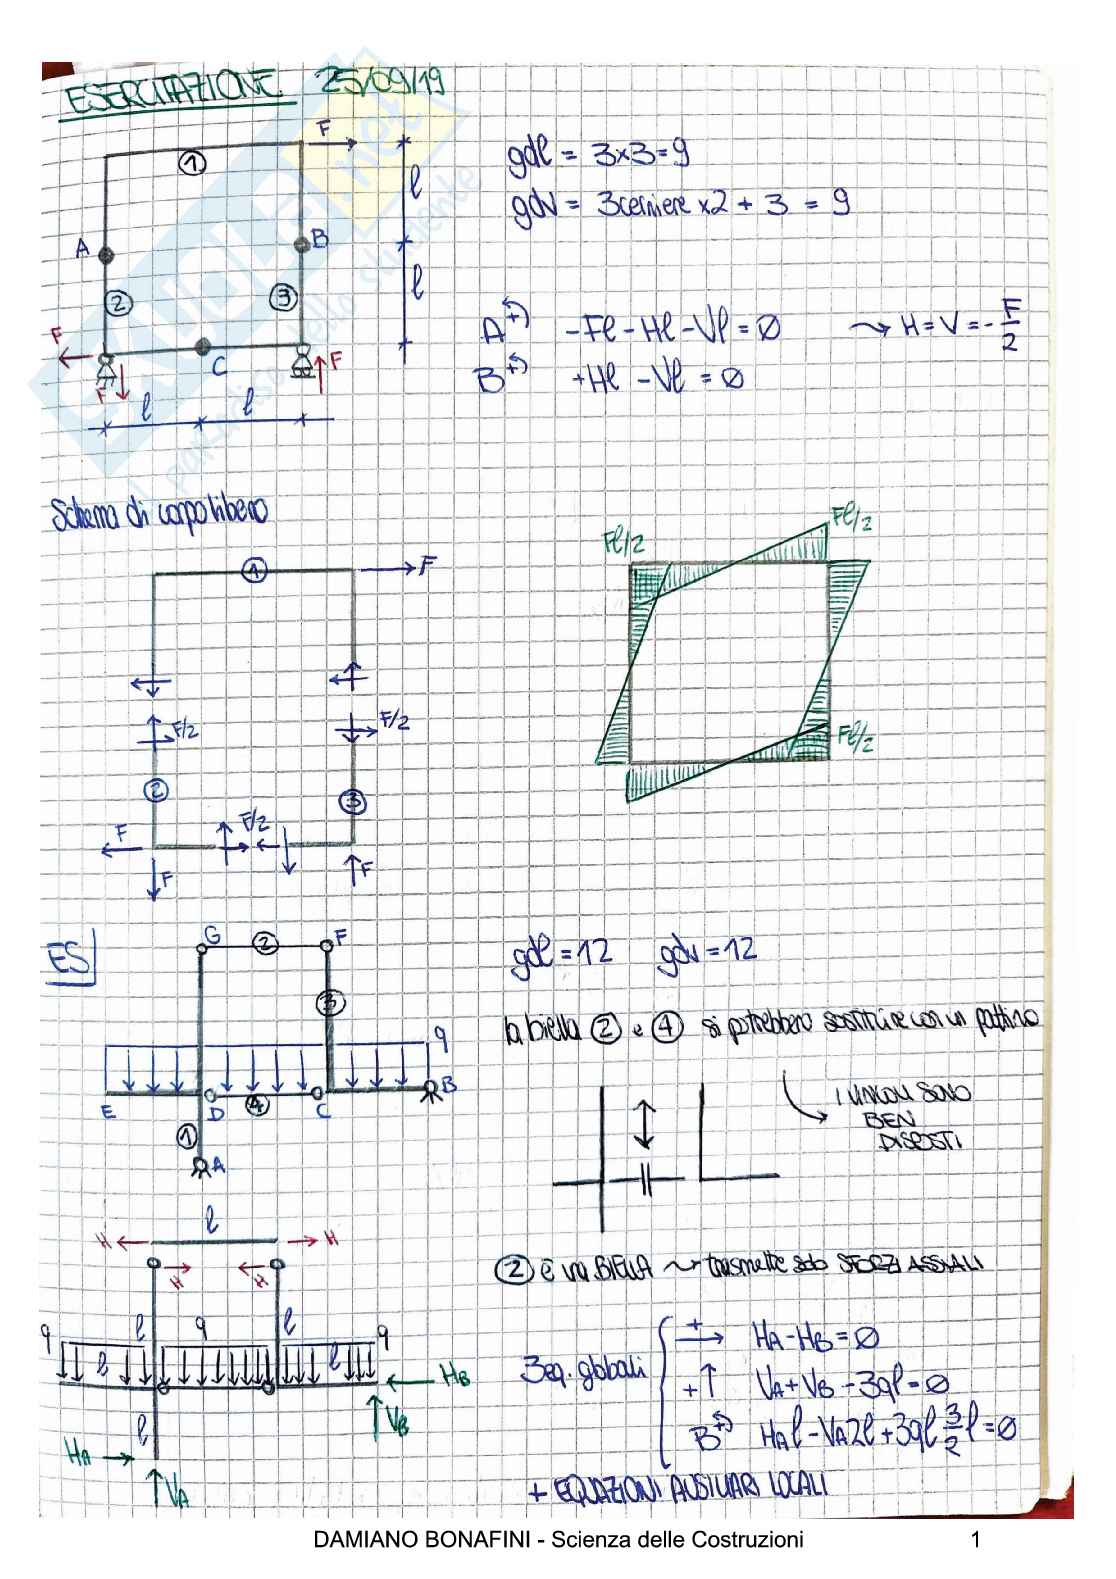 ESERCITAZIONE 25/09/19
F
1
l
A
B
l
2
3
F
F
C
F
l
l
gdl = 3×3=9
gdv = 3cerniere ×2 + 3 = 9
A (+) -Fl - Hl - Vl = 0 ⇝ H = V = -F/2
B (+) +Hl - Vl = 0
Schema di corpo libero
1
F
F/2
F/2
2
3
F
F/2
F
F
Fl/2
Fl/2
Fl/2
ES
G
2
F
3
q
E
D
4
C
B
1
A
gdl = 12 gdv = 12
la biella 2 e 4 si potrebbero sostituire con un pattino
I VINCOLI SONO
BEN
DISPOSTI
l
H
H
H
H
l
l
q
q
q
l
l
l
HB
VB
HA
VA
2 è una BIELLA ⇝ trasmette solo SFORZI ASSIALI
3 eq. globali
+→ HA - HB = 0
+↑ VA + VB - 3ql = 0
B (+) HA l - VA 2l + 3ql 3/2 l = 0
+ EQUAZIONI AUSILIARI LOCALI
DAMIANO BONAFINI - Scienza delle Costruzioni 1